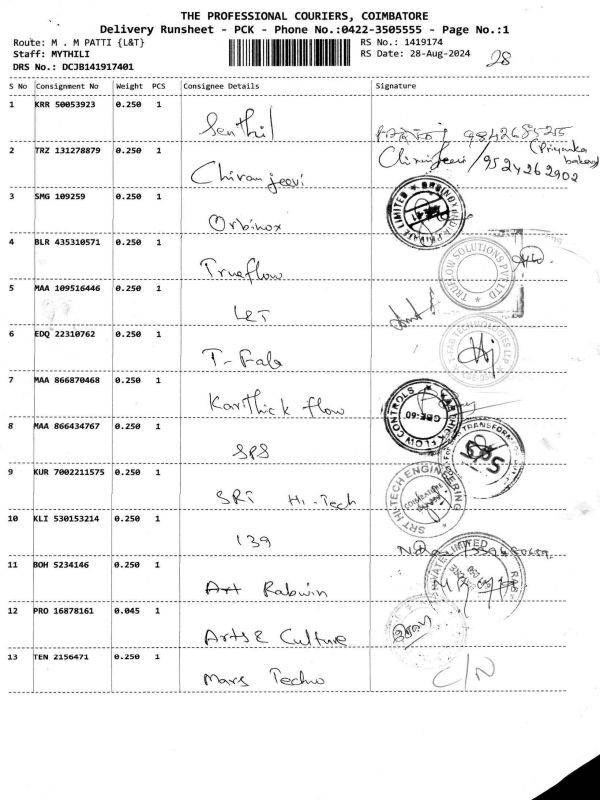 THE PROFESSIONAL COURIERS, COIMBATORE
Delivery Runsheet - PCK - Phone No.:0422-3505555 - Page No.:1
Route: M . M PATTI {L&T} RS No.: 1419174
Staff: MYTHILI RS Date: 28-Aug-2024 28
DRS No.: DCJB141917401
S No Consignment No Weight PCS Consignee Details Signature
1 KRR 50053923 0.250 1 Senthil 9842685215
(Priyanka bakery)
2 TRZ 131278879 0.250 1 Chiranjeevi Chiranjeevi / 9524262902
3 SMG 109259 0.250 1 Orbinox
4 BLR 435310571 0.250 1 Trueflow TRUFLOW SOLUTIONS PVT LTD
5 MAA 109516446 0.250 1 L&T
6 EDQ 22310762 0.250 1 T-Fab
7 MAA 866870468 0.250 1 Karthick flow KARTHICK FLOW CONTROLS CBE-60
8 MAA 866434767 0.250 1 SPS
9 KUR 7002211575 0.250 1 SRT Hi-Tech SRT HI-TECH ENGINEERING COIMBATORE
10 KLI 530153214 0.250 1 139
11 BOH 5234146 0.250 1 Art Rabwin
12 PRO 16878161 0.045 1 Arts & Culture
13 TEN 2156471 0.250 1 Mars Techno C/N